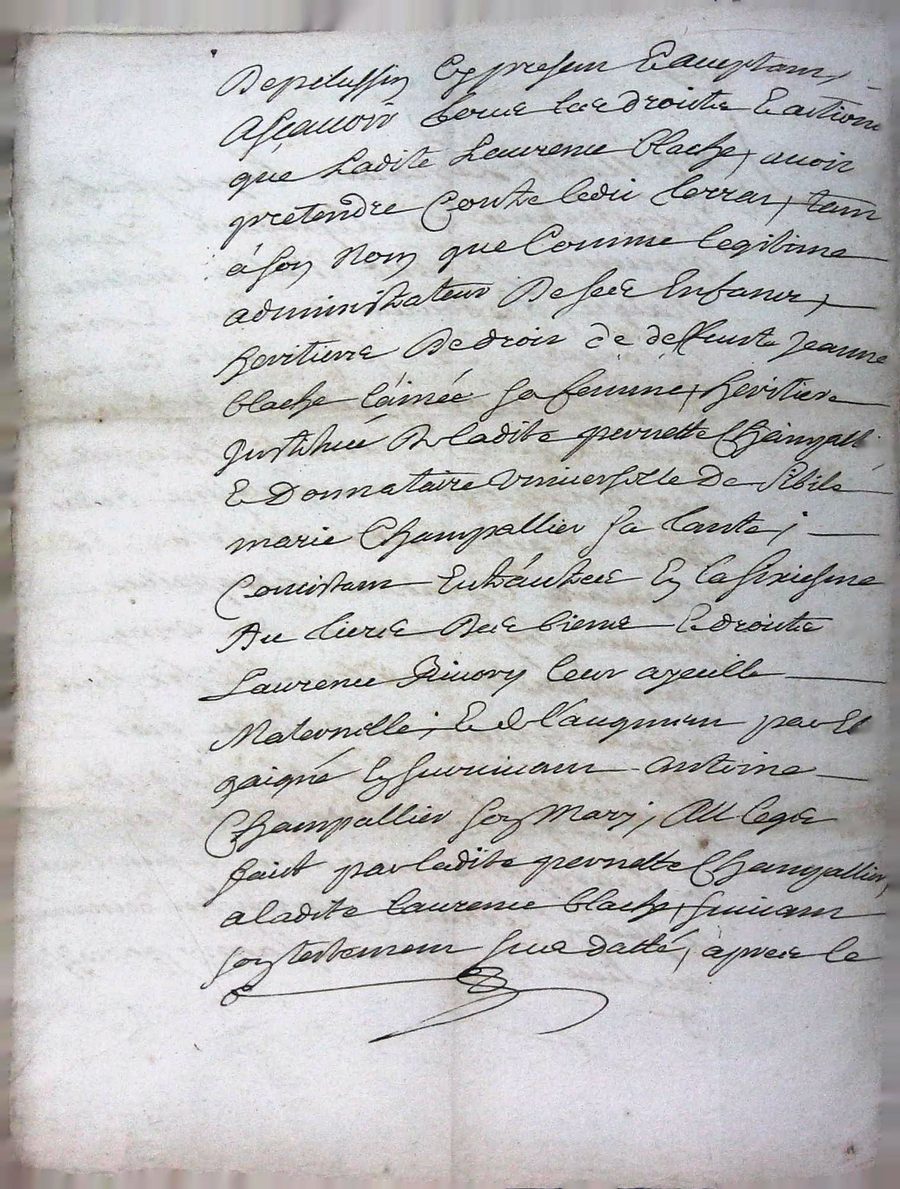 Depelussin Cy present Eacceptant,
Asçauoir touts les droits Eactions
que Ladite Laurence blache, auoir
pretendre Contre ledit terras, tant
a son Nom que Comme legitime
administrateur De ses Enfants,
heritiers De droit de deffunte Jeanne
blache L'ainée sa femme, heritiere
Instituée De ladite pernette Champall
E Donnataire Vniuerselle De Sibile
marie Champallier sa tante;
Concistant En la Siziesme
Des biens E droits
Laurence Riuory leur ayeulle
Maternelle, E de l'augment par El
gaigné En suruiuant antoine
Champallier son Mary, Au legs
fait par ladite pernette Champallier,
a ladite laurence blache, suiuant
son testement sus datté, apres le